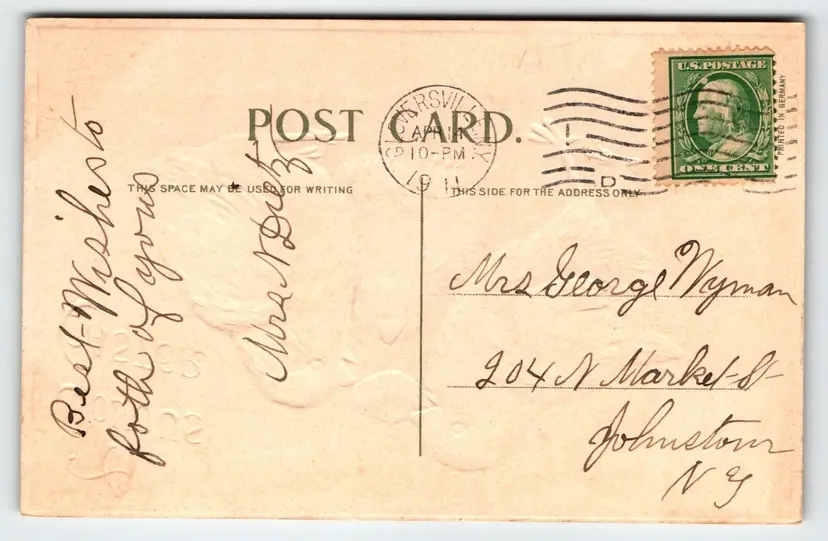 POST CARD.
THIS SPACE MAY BE USED FOR WRITING
THIS SIDE FOR THE ADDRESS ONLY
Best Wishes to
both of yous
Mrs N Dietz
GLOVERSVILLE N.Y.
APR 14
10-PM
1911
D
U.S. POSTAGE
ONE CENT
PRINTED IN GERMANY
Mrs George Wyman
204 N Market St
Johnstown
N Y